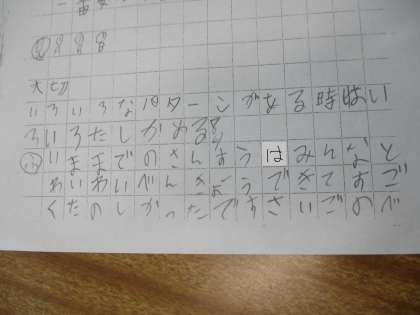 一番
888
大切
いろいろなパターンがある時はい
ろいろたしかめる
いままでのさんすうはみんなと
わいわいべんきょうできてすご
くたのしかったですさいごのべ